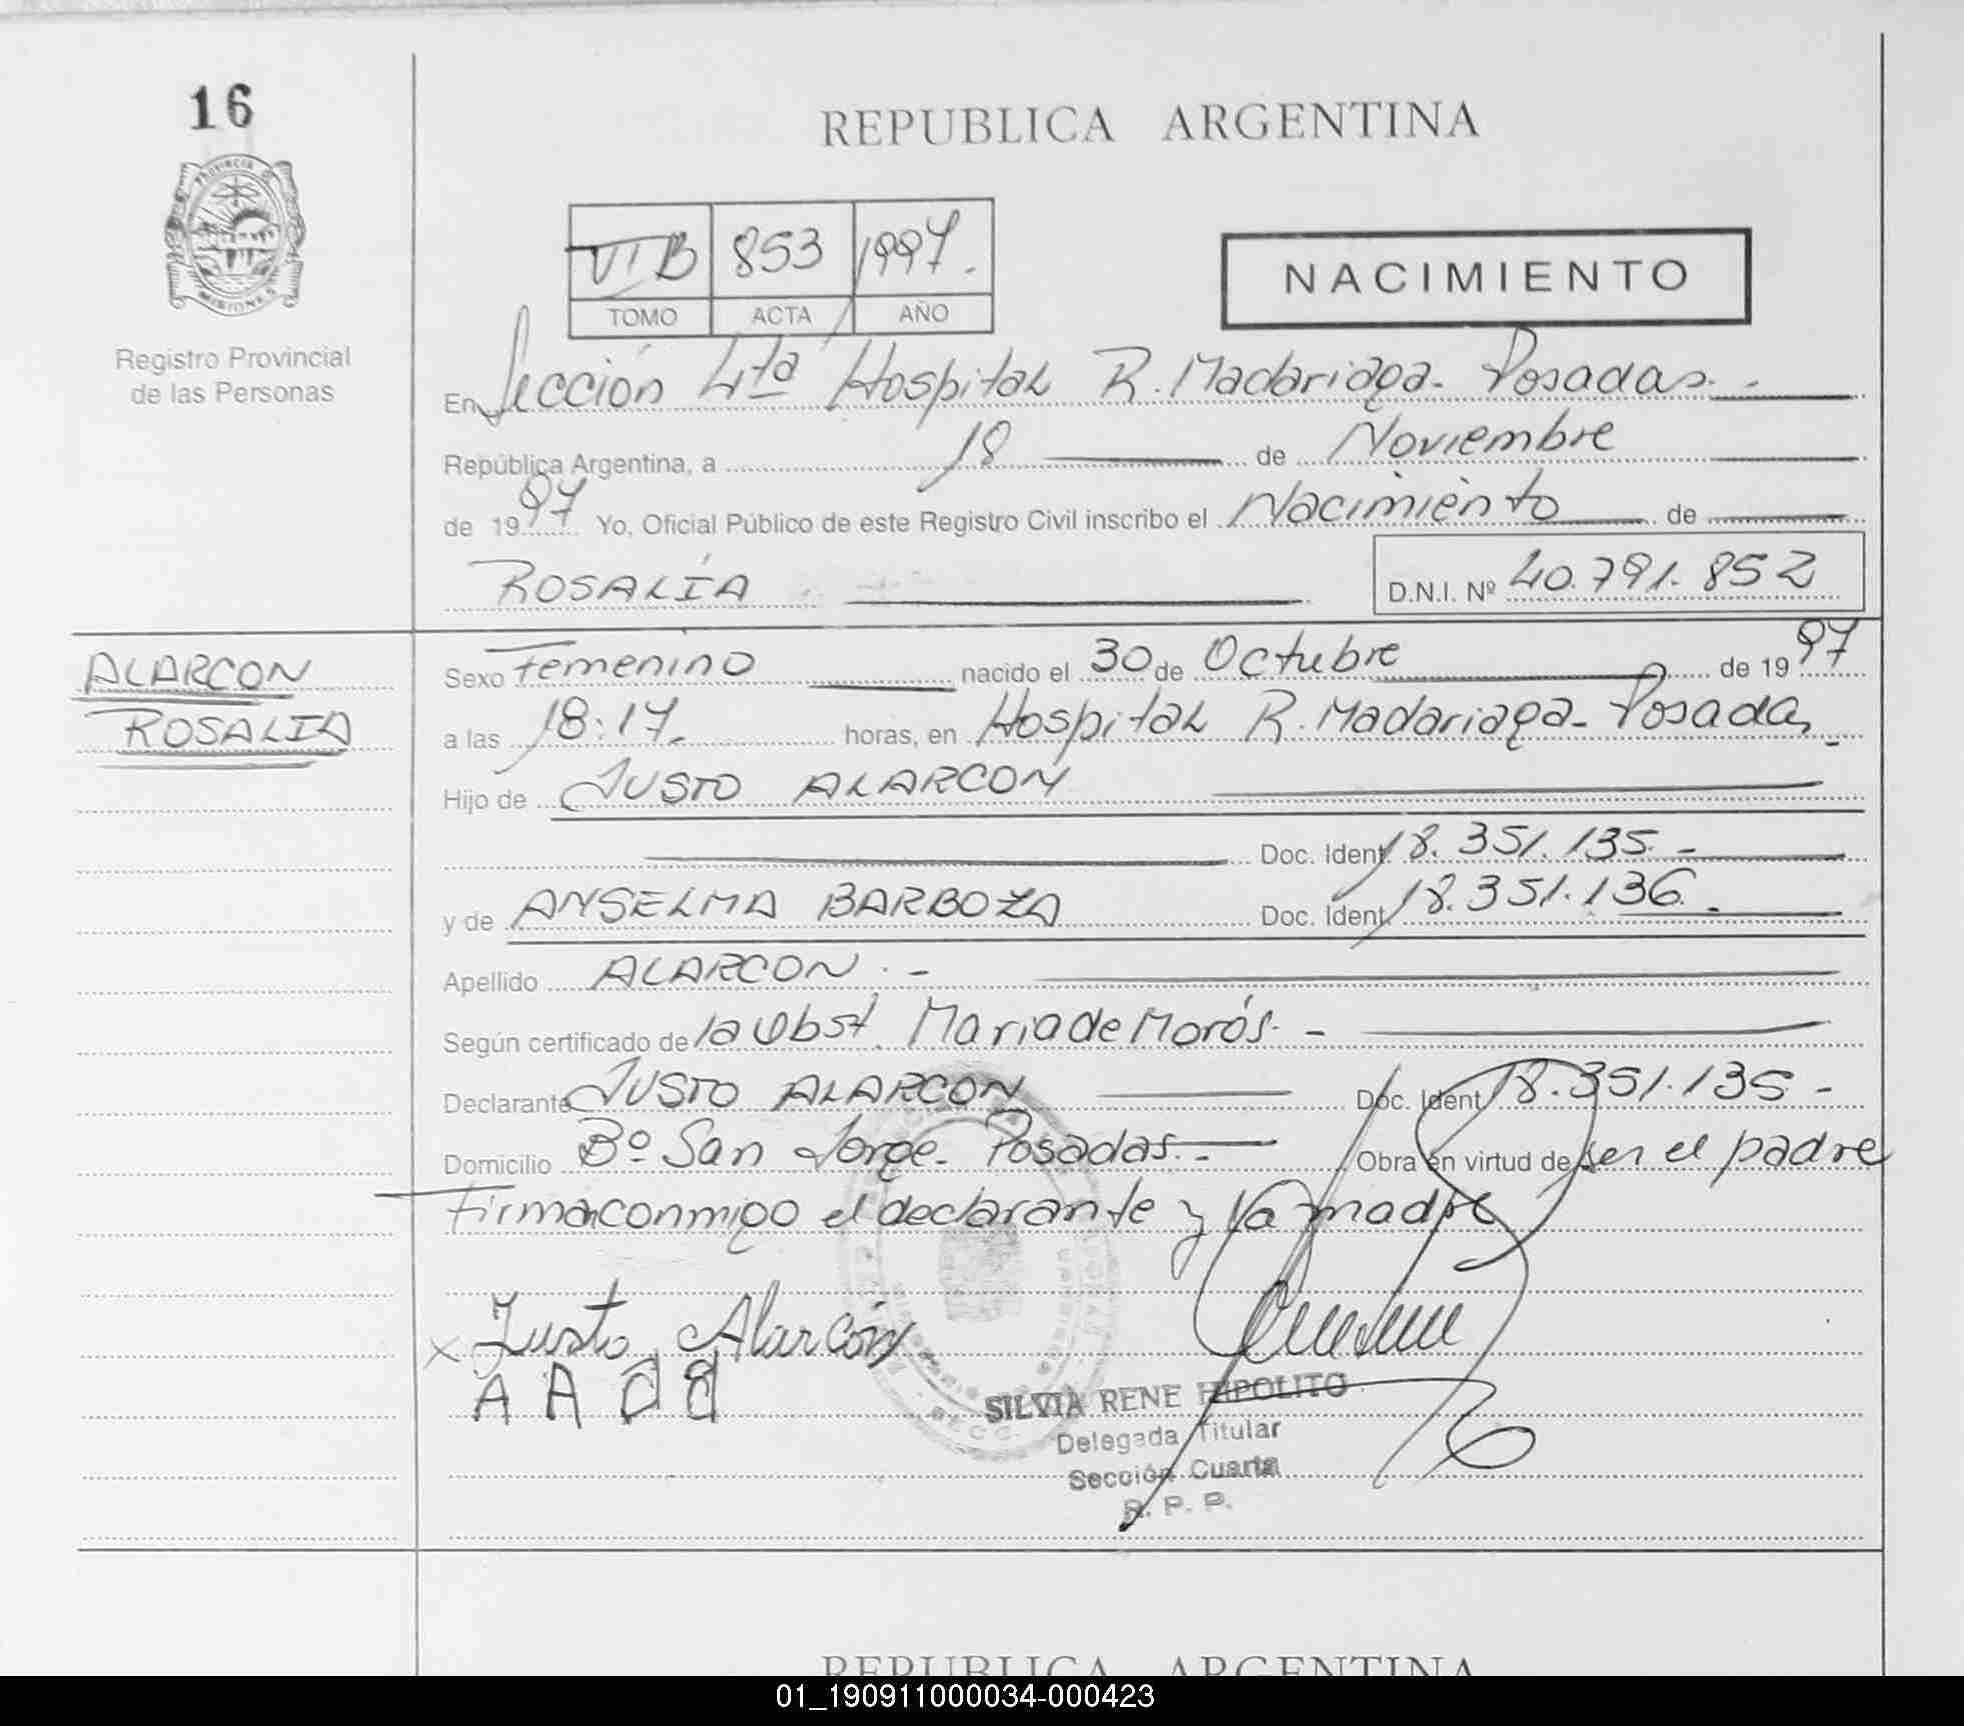 16
REPUBLICA ARGENTINA
PROVINCIA D
MISIONES
Registro Provincial
de las Personas
VI B 853 1997.
TOMO ACTA AÑO
NACIMIENTO
En Sección 4ta Hospital R. Madariaga - Posadas. -
República Argentina, a 18 de Noviembre
de 19 97 Yo, Oficial Público de este Registro Civil inscribo el Nacimiento de
ROSALÍA D.N.I. Nº 40.791.852
ALARCON
ROSALIA
Sexo Femenino nacido el 30 de Octubre de 19 97
a las 18:17. horas, en Hospital R. Madariaga - Posadas -
Hijo de JUSTO ALARCON
Doc. Ident. 18.351.135 -
y de ANSELMA BARBOZA Doc. Ident. 18.351.136. -
Apellido ALARCON. -
Según certificado de la Obst. Maria de Morós. -
Declarante JUSTO ALARCON Doc. Ident. 18.351.135 -
Domicilio Bº San Jorge - Posadas. - Obra en virtud de ser el padre
Firman conmigo el declarante y la madre
x Justo Alarcón
SILVIA RENE HIPOLITO
Delegada Titular
Sección Cuarta
R. P. P.
REPUBLICA ARGENTINA
01_190911000034-000423